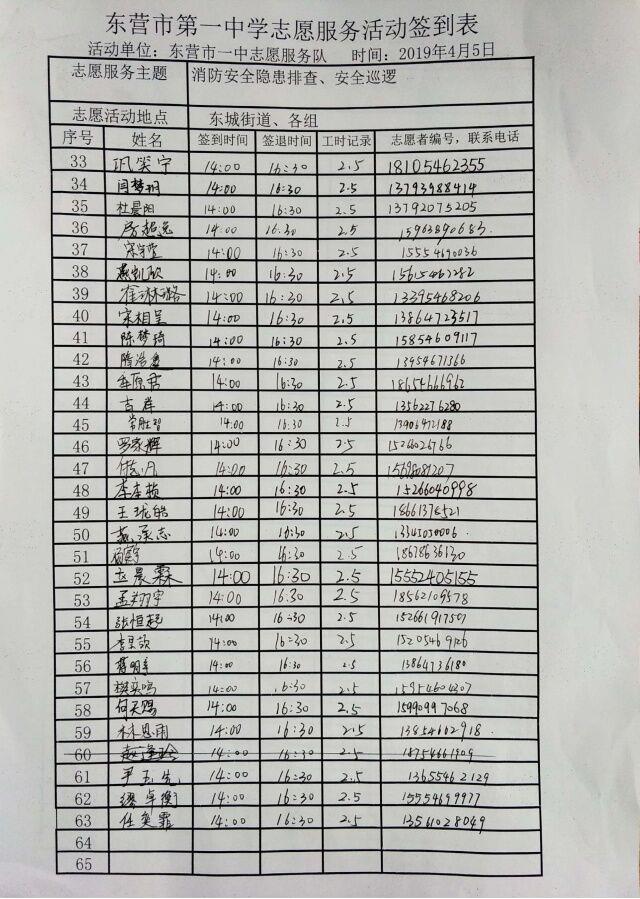 东营市第一中学志愿服务活动签到表
活动单位：东营市一中志愿服务队 时间：2019年4月5日
志愿服务主题 消防安全隐患排查、安全巡逻
志愿活动地点 东城街道、各组
序号 姓名 签到时间 签退时间 工时记录 志愿者编号，联系电话
33 巩奕宁 14:00 16:30 2.5 18105462355
34 闫梦桐 14:00 16:30 2.5 13793988414
35 杜晨阳 14:00 16:30 2.5 13792075205
36 房超逸 14:00 16:30 2.5 15963890683
37 14:00 16:30 2.5 15554690036
38 燕凯欣 14:00 16:30 2.5 15615462282
39 崔琳璐 14:00 16:30 2.5 13395468206
40 宋相呈 14:00 16:30 2.5 13864723517
41 陈梦琦 14:00 16:30 2.5 15854609117
42 隋浩鑫 14:00 16:30 2.5 13954671366
43 14:00 16:30 2.5 18654666962
44 吉祥 14:00 16:30 2.5 13562276280
45 常胜智 14:00 16:30 2.5 13906472188
46 罗家辉 14:00 16:30 2.5 1526026766
47 14:00 16:30 2.5 15698081207
48 李孝桢 14:00 16:30 2.5 15266040998
49 王珑皓 14:00 16:30 2.5
50 燕承志 14:00 16:30 2.5
51 14:00 16:30 2.5 18678636130
52 孟晨霖 14:00 16:30 2.5 15552405155
53 孟翔宇 14:00 16:30 2.5 18562109578
54 张恒起 14:00 16:30 2.5 15266191750
55 14:00 16:30 2.5 15205469126
56 蒋明 14:00 16:30 2.5 13864736180
57 14:00 16:30 2.5 15954604307
58 何天赐 14:00 16:30 2.5 15990997068
59 林思雨 14:00 16:30 2.5 13854602918
60 14:00 16:30 2.5 18754661909
61 尹玉龙 14:00 16:30 2.5 13655462129
62 缪卓衡 14:00 16:30 2.5 15554699977
63 任奕霏 14:00 16:30 2.5 13561028049
64
65